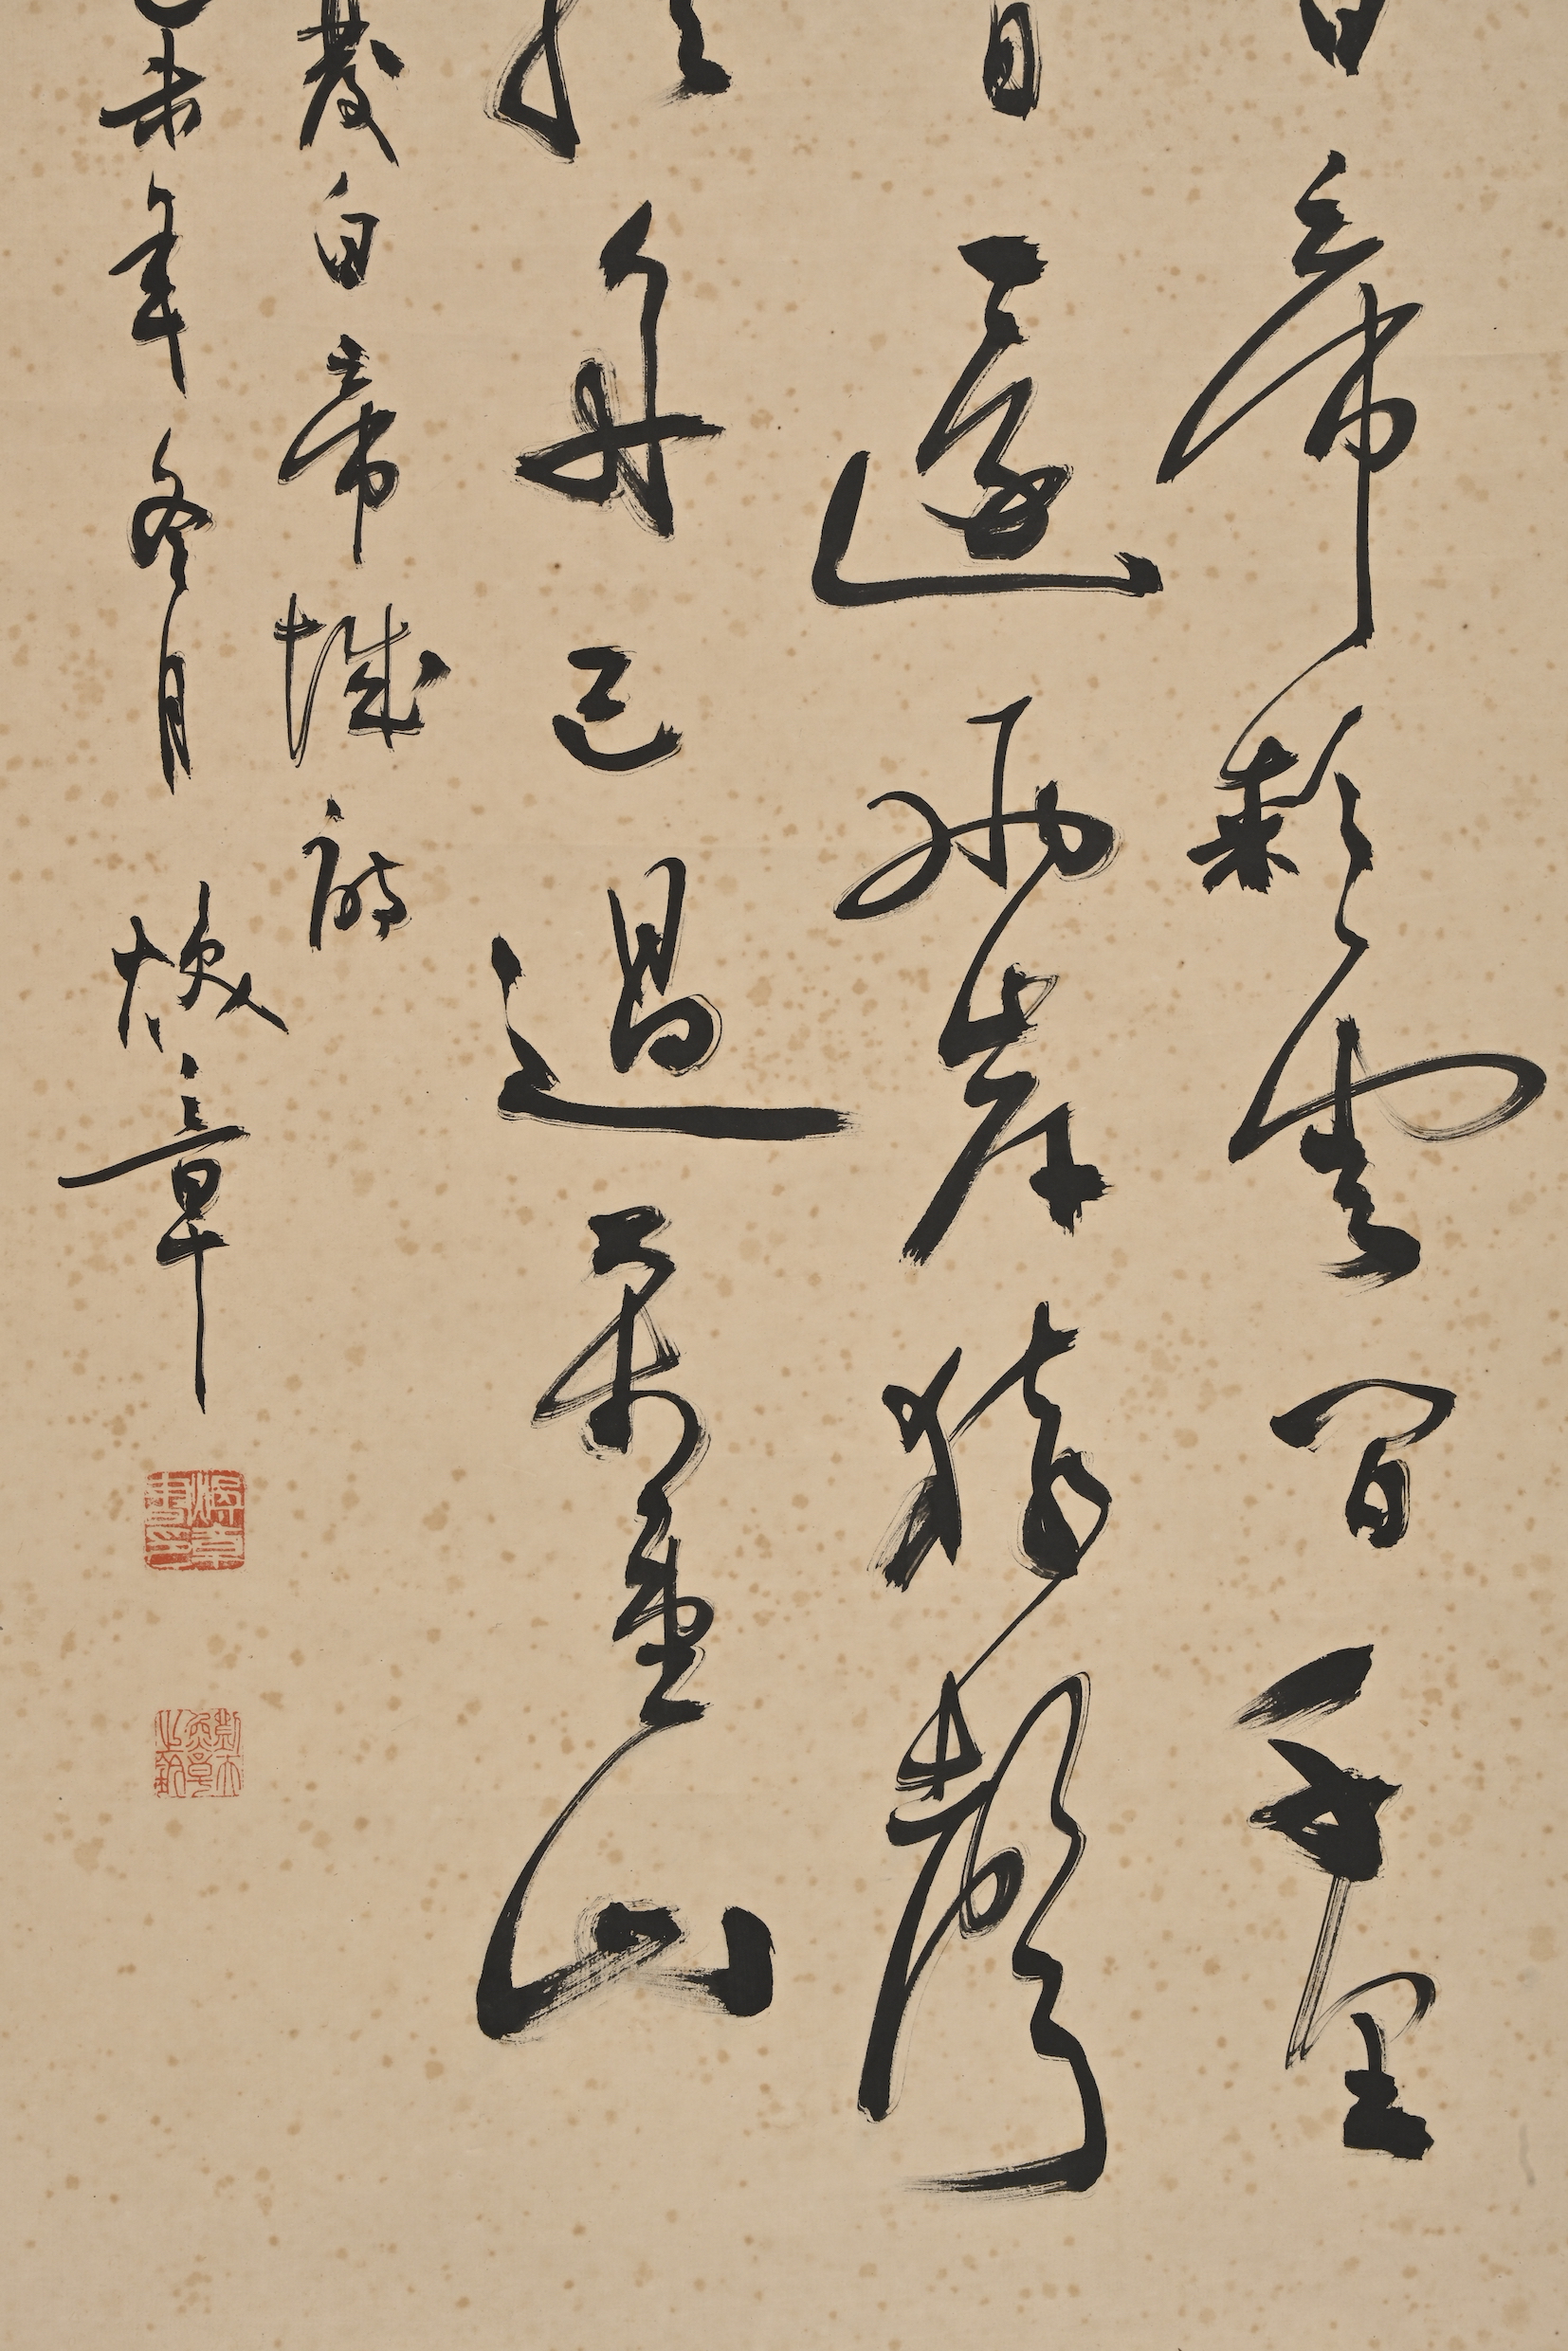 白帝彩雲間千里
日還兩岸猿聲
舟已過萬重山
發白帝城詩
未年冬月 煥章
煥章書印